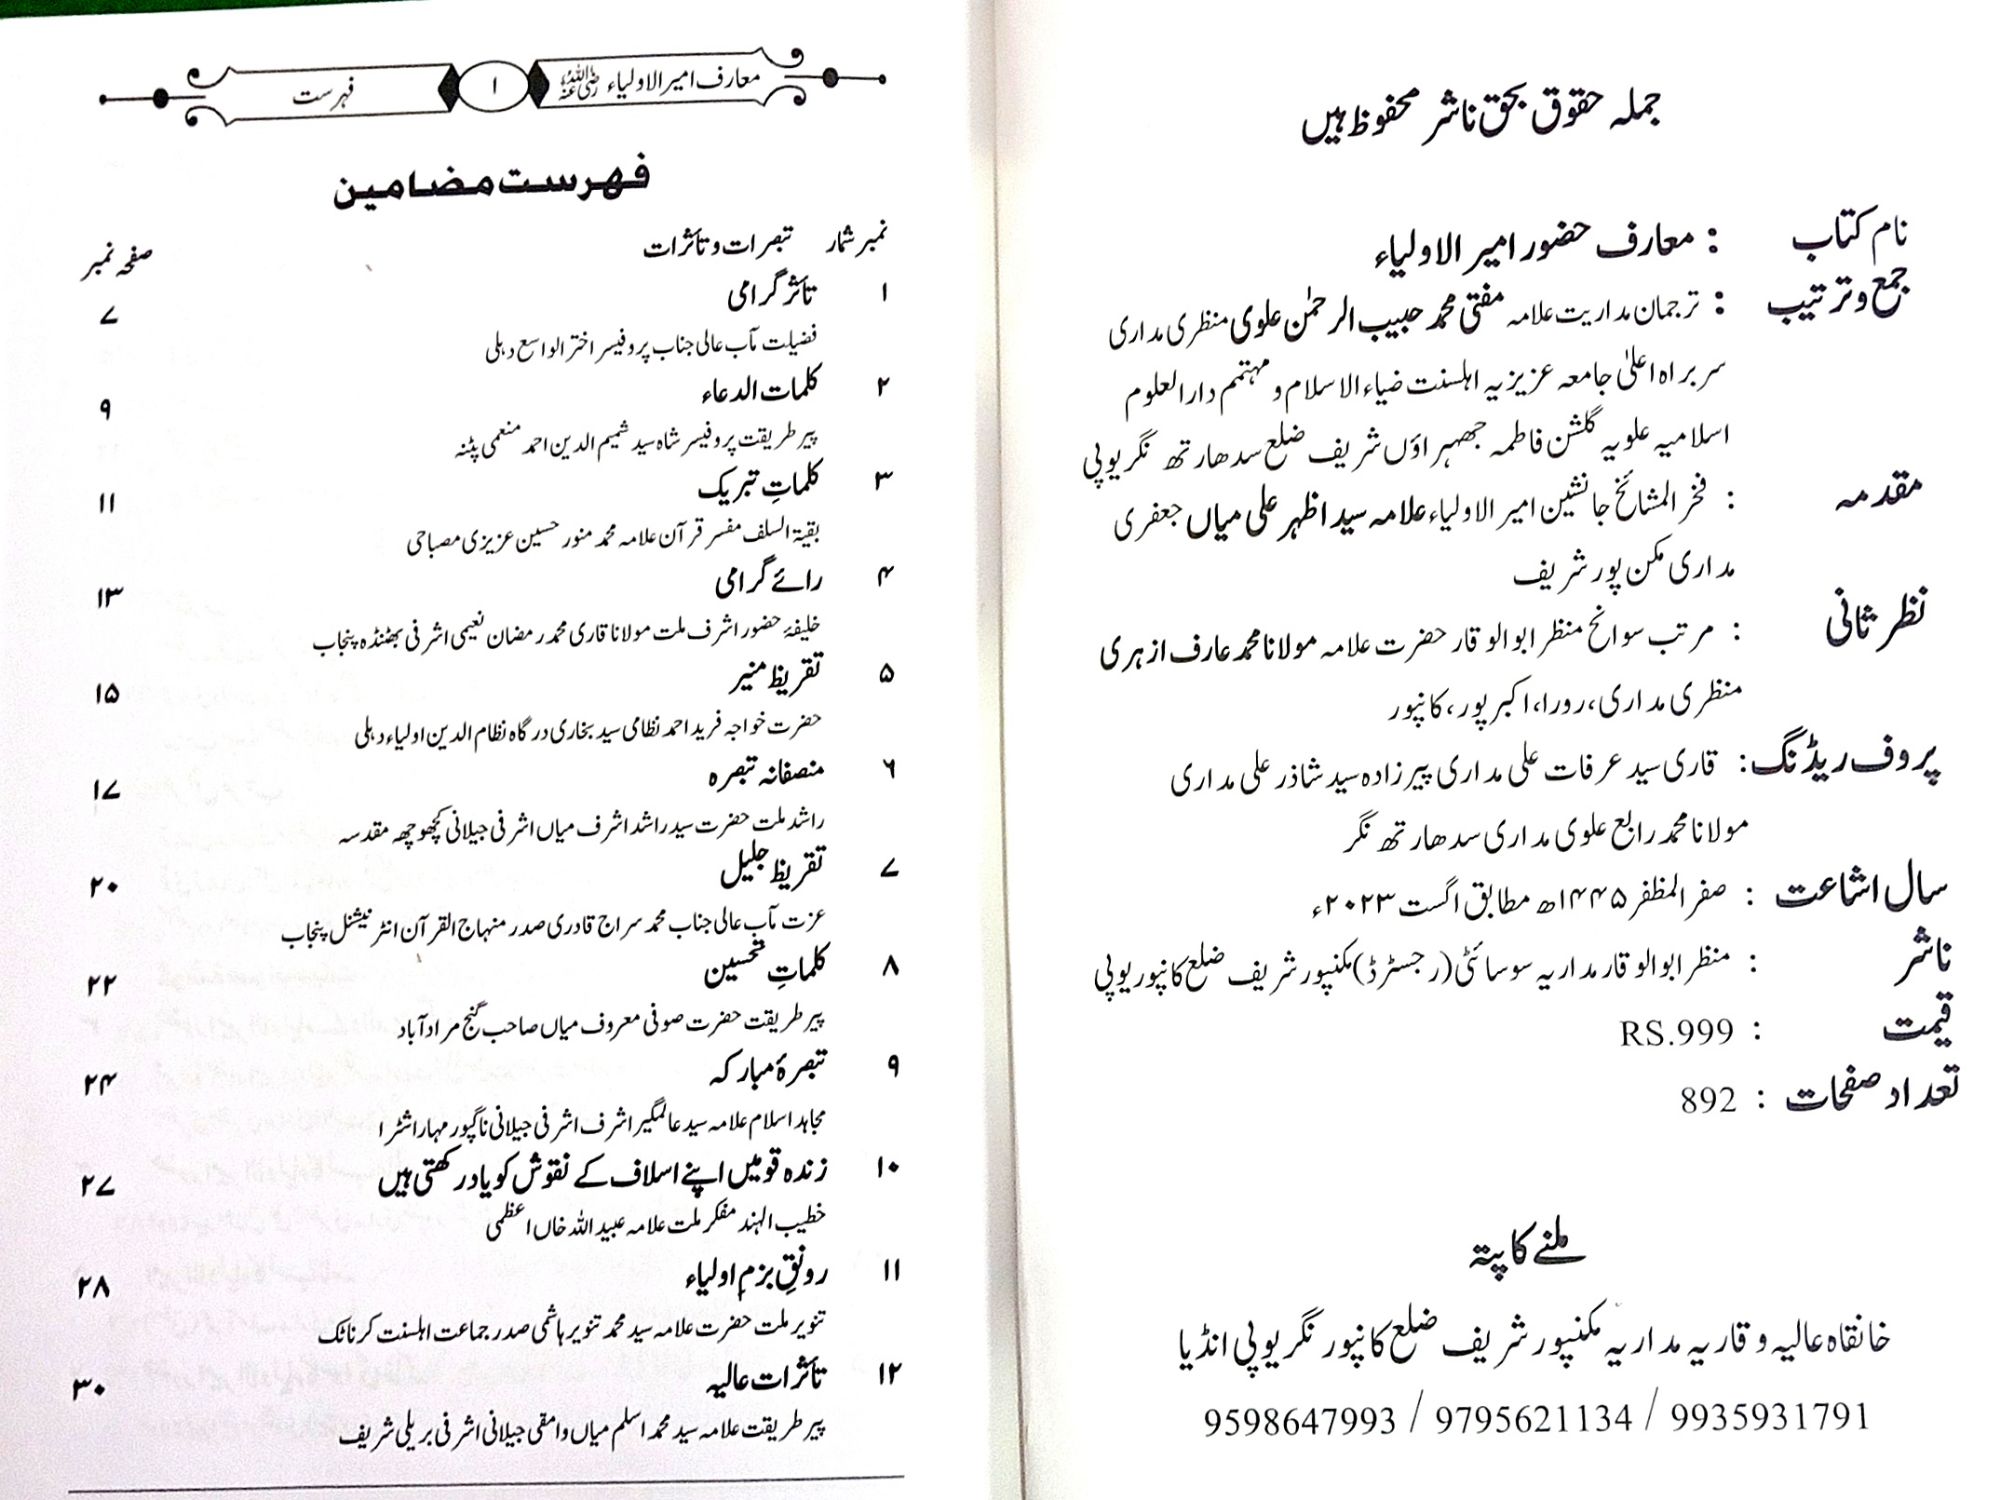 جملہ حقوق بحق ناشر محفوظ ہیں
نام کتاب : معارف حضور امیر الاولیاء
جمع و ترتیب : ترجمان مداریت علامہ مفتی محمد حبیب الرحمٰن علوی منظری مداری
سربراہ اعلیٰ جامعہ عزیزیہ اہلسنت ضیاء الاسلام و مہتمم دارالعلوم
اسلامیہ علویہ گلشن فاطمہ جھہراؤں شریف ضلع سدھارتھ نگر یوپی
مقدمہ : فخر المشائخ جانشین امیر الاولیاء علامہ سید اظہر علی میاں جعفری
مداری مکن پور شریف
نظر ثانی : مرتب سوانح منظر ابوالوقار حضرت علامہ مولانا محمد عارف ازہری
منظری مداری، رورا، اکبر پور، کانپور
پروف ریڈنگ: قاری سید عرفات علی مداری پیرزادہ سید شاذر علی مداری
مولانا محمد رابع علوی مداری سدھارتھ نگر
سال اشاعت : صفر المظفر ۱۴۴۵ھ مطابق اگست ۲۰۲۳ء
ناشر : منظر ابوالوقار مداریہ سوسائٹی (رجسٹرڈ) مکنپور شریف ضلع کانپور یوپی
قیمت : RS.999
تعداد صفحات : 892
ملنے کا پتہ
خانقاہ عالیہ وقاریہ مداریہ مکنپور شریف ضلع کانپور نگر یوپی انڈیا
9598647993 / 9795621134 / 9935931791
معارف امیر الاولیاء رضی اللہ عنہ ۱ فہرست
فہرست مضامین
نمبر شمار تبصرات و تأثرات صفحہ نمبر
۱ تأثر گرامی ۷
فضیلت مآب عالی جناب پروفیسر اختر الواسع دہلی
۲ کلمات الدعاء ۹
پیر طریقت پروفیسر شاہ سید شمیم الدین احمد منعمی پٹنہ
۳ کلماتِ تبریک ۱۱
بقیۃ السلف مفسر قرآن علامہ محمد منور حسین عزیزی مصباحی
۴ رائے گرامی ۱۳
خلیفۂ حضور اشرف ملت مولانا قاری محمد رمضان نعیمی اشرفی بھٹنڈہ پنجاب
۵ تقریظ منیر ۱۵
حضرت خواجہ فرید احمد نظامی سید بخاری درگاہ نظام الدین اولیاء دہلی
۶ منصفانہ تبصرہ ۱۷
راشد ملت حضرت سید راشد اشرف میاں اشرفی جیلانی کچھوچھہ مقدسہ
۷ تقریظ جلیل ۲۰
عزت مآب عالی جناب محمد سراج قادری صدر منہاج القرآن انٹرنیشنل پنجاب
۸ کلماتِ تحسین ۲۲
پیر طریقت حضرت صوفی معروف میاں صاحب گنج مرادآباد
۹ تبصرۂ مبارکہ ۲۴
مجاہد اسلام علامہ سید عالمگیر اشرف اشرفی جیلانی ناگپور مہاراشٹرا
۱۰ زندہ قومیں اپنے اسلاف کے نقوش کو یاد رکھتی ہیں ۲۷
خطیب الہند مفکر ملت علامہ عبید اللہ خاں اعظمی
۱۱ رونقِ بزمِ اولیاء ۲۸
تنویر ملت حضرت علامہ سید محمد تنویر ہاشمی صدر جماعت اہلسنت کرناٹک
۱۲ تأثرات عالیہ ۳۰
پیر طریقت علامہ سید محمد اسلم میاں وامقی جیلانی اشرفی بریلی شریف